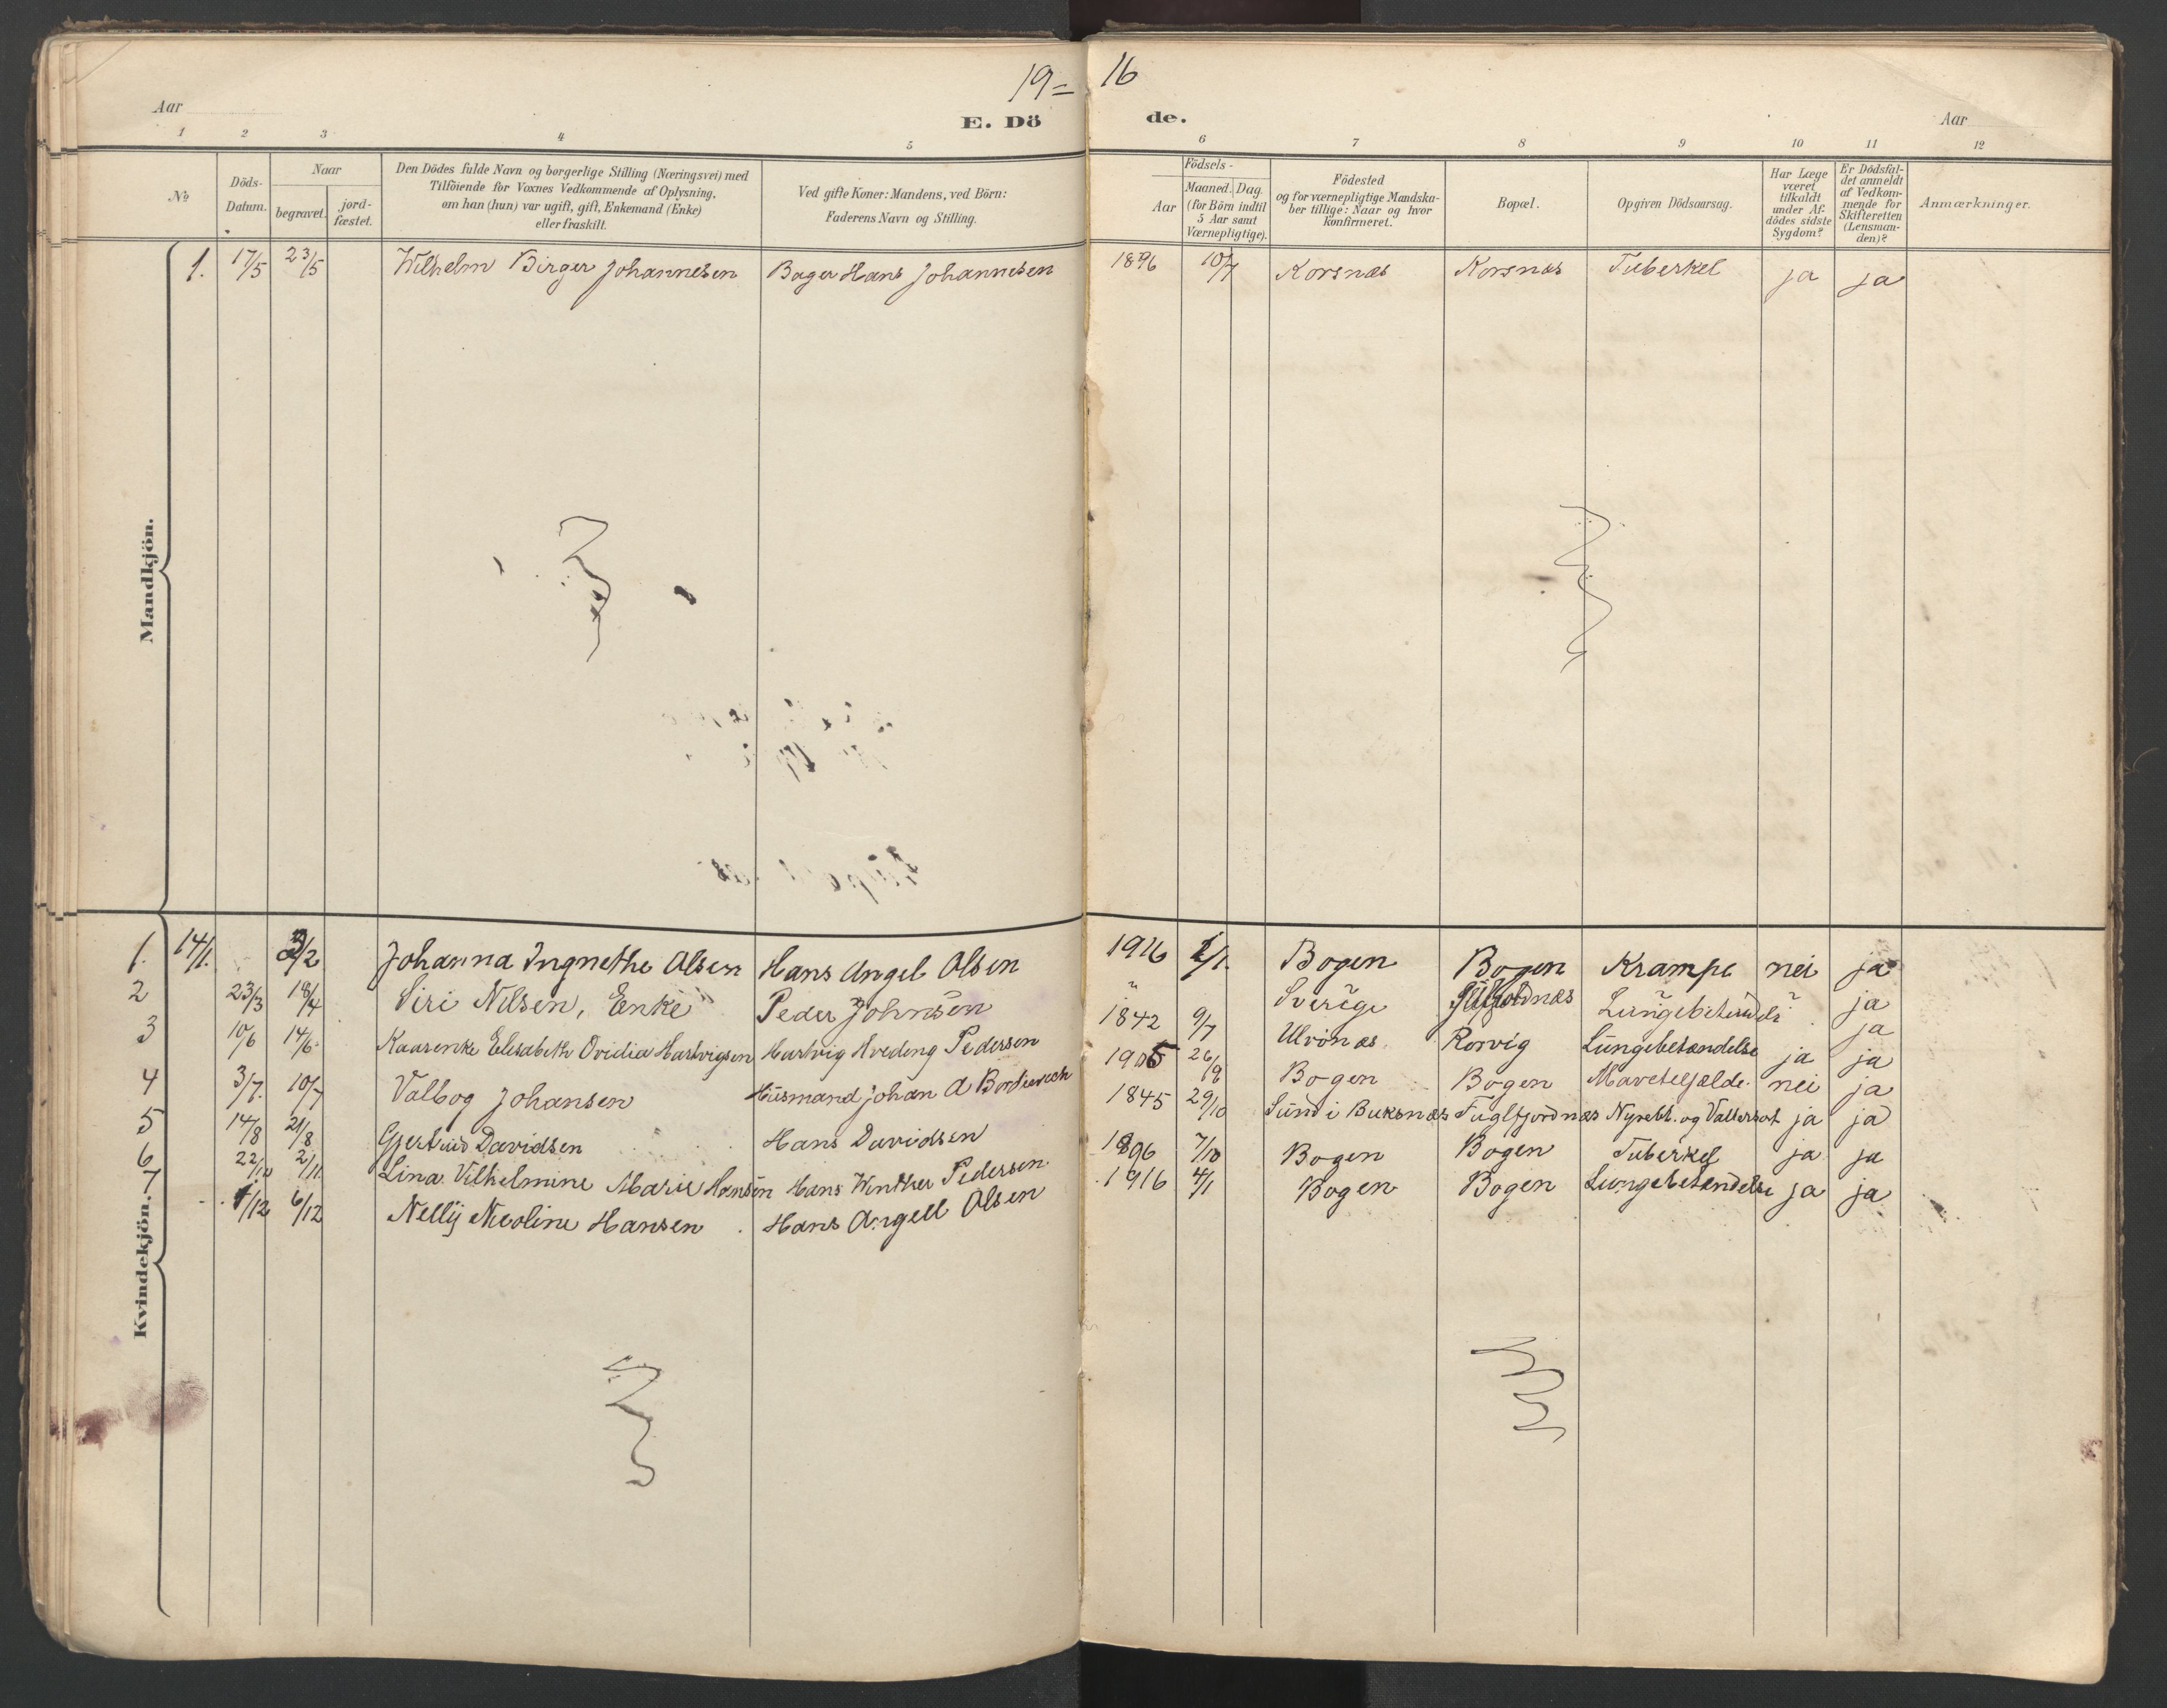 19= 16
Aar
E. Dö de.
Aar
1 2 3 4 5 6 7 8 9 10 11 12
No
Döds-Datum.
Naar
begravet.
jord-fæstet.
Den Dödes fulde Navn og borgerlige Stilling (Næringsvei) med
Tilföiende for Voxnes Vedkommende af Oplysning,
om han (hun) var ugift, gift, Enkemand (Enke)
eller fraskilt.
Ved gifte Koner: Mandens, ved Börn:
Faderens Navn og Stilling.
Födsels-
Aar
Maaned. Dag.
(for Börn indtil
5 Aar samt
Værnepligtige).
Födested
og for værnepligtige Mandska-
ber tillige: Naar og hvor
konfirmeret.
Bopæl.
Opgiven Dödsaarsag.
Har Læge
været
tilkaldt
under Af-
dödes sidste
Sygdom?
Er Dödsfal-
det anmeldt
af Vedkom-
mende for
Skifteretten
(Lensman-
den)?
Anmærkninger.
Mandkjön.
1. 17/5 23/5 Wilhelm Birger Johannesen Bager Hans Johannesen 1896 10/7 Korsnæs Korsnæs Tuberkel ja ja
Kvindekjön.
1. 14/1. 3/2 Johanna Ingnethe Olsen Hans Angel Olsen 1916 1/1. Bogen Bogen Krampe nei ja
2 23/3 18/4 Siri Nilsen, Enke Peder Johnsen " Sverige ja
3 10/6 14/6 Kaarenke Elisabeth Ovidia Hartvigsen Hartvig Hveding Pedersen 1842 9/7 Ulvönæs Rorvig Lungebetændelse ja ja
4 3/7. 10/7 Valbog Johansen Husmand Johan A 1905 26/9 Bogen Bogen nei ja
5 14/8 21/8 Gjertrud Davidsen Hans Davidsen 1845 29/10 Sund i Buksnæs Fuglfjordnæs Nyrebet. og Vattersot ja ja
6 22/10 2/11 Lina Vilhelmine Marie Hansen Hans Winther Pedersen 1896 7/10 Bogen Bogen Tuberkel ja ja
7 1/12 6/12 Nellij Nicoline Hansen Hans Angell Olsen 1916 4/1 Bogen Bogen Lungebetændelse ja ja